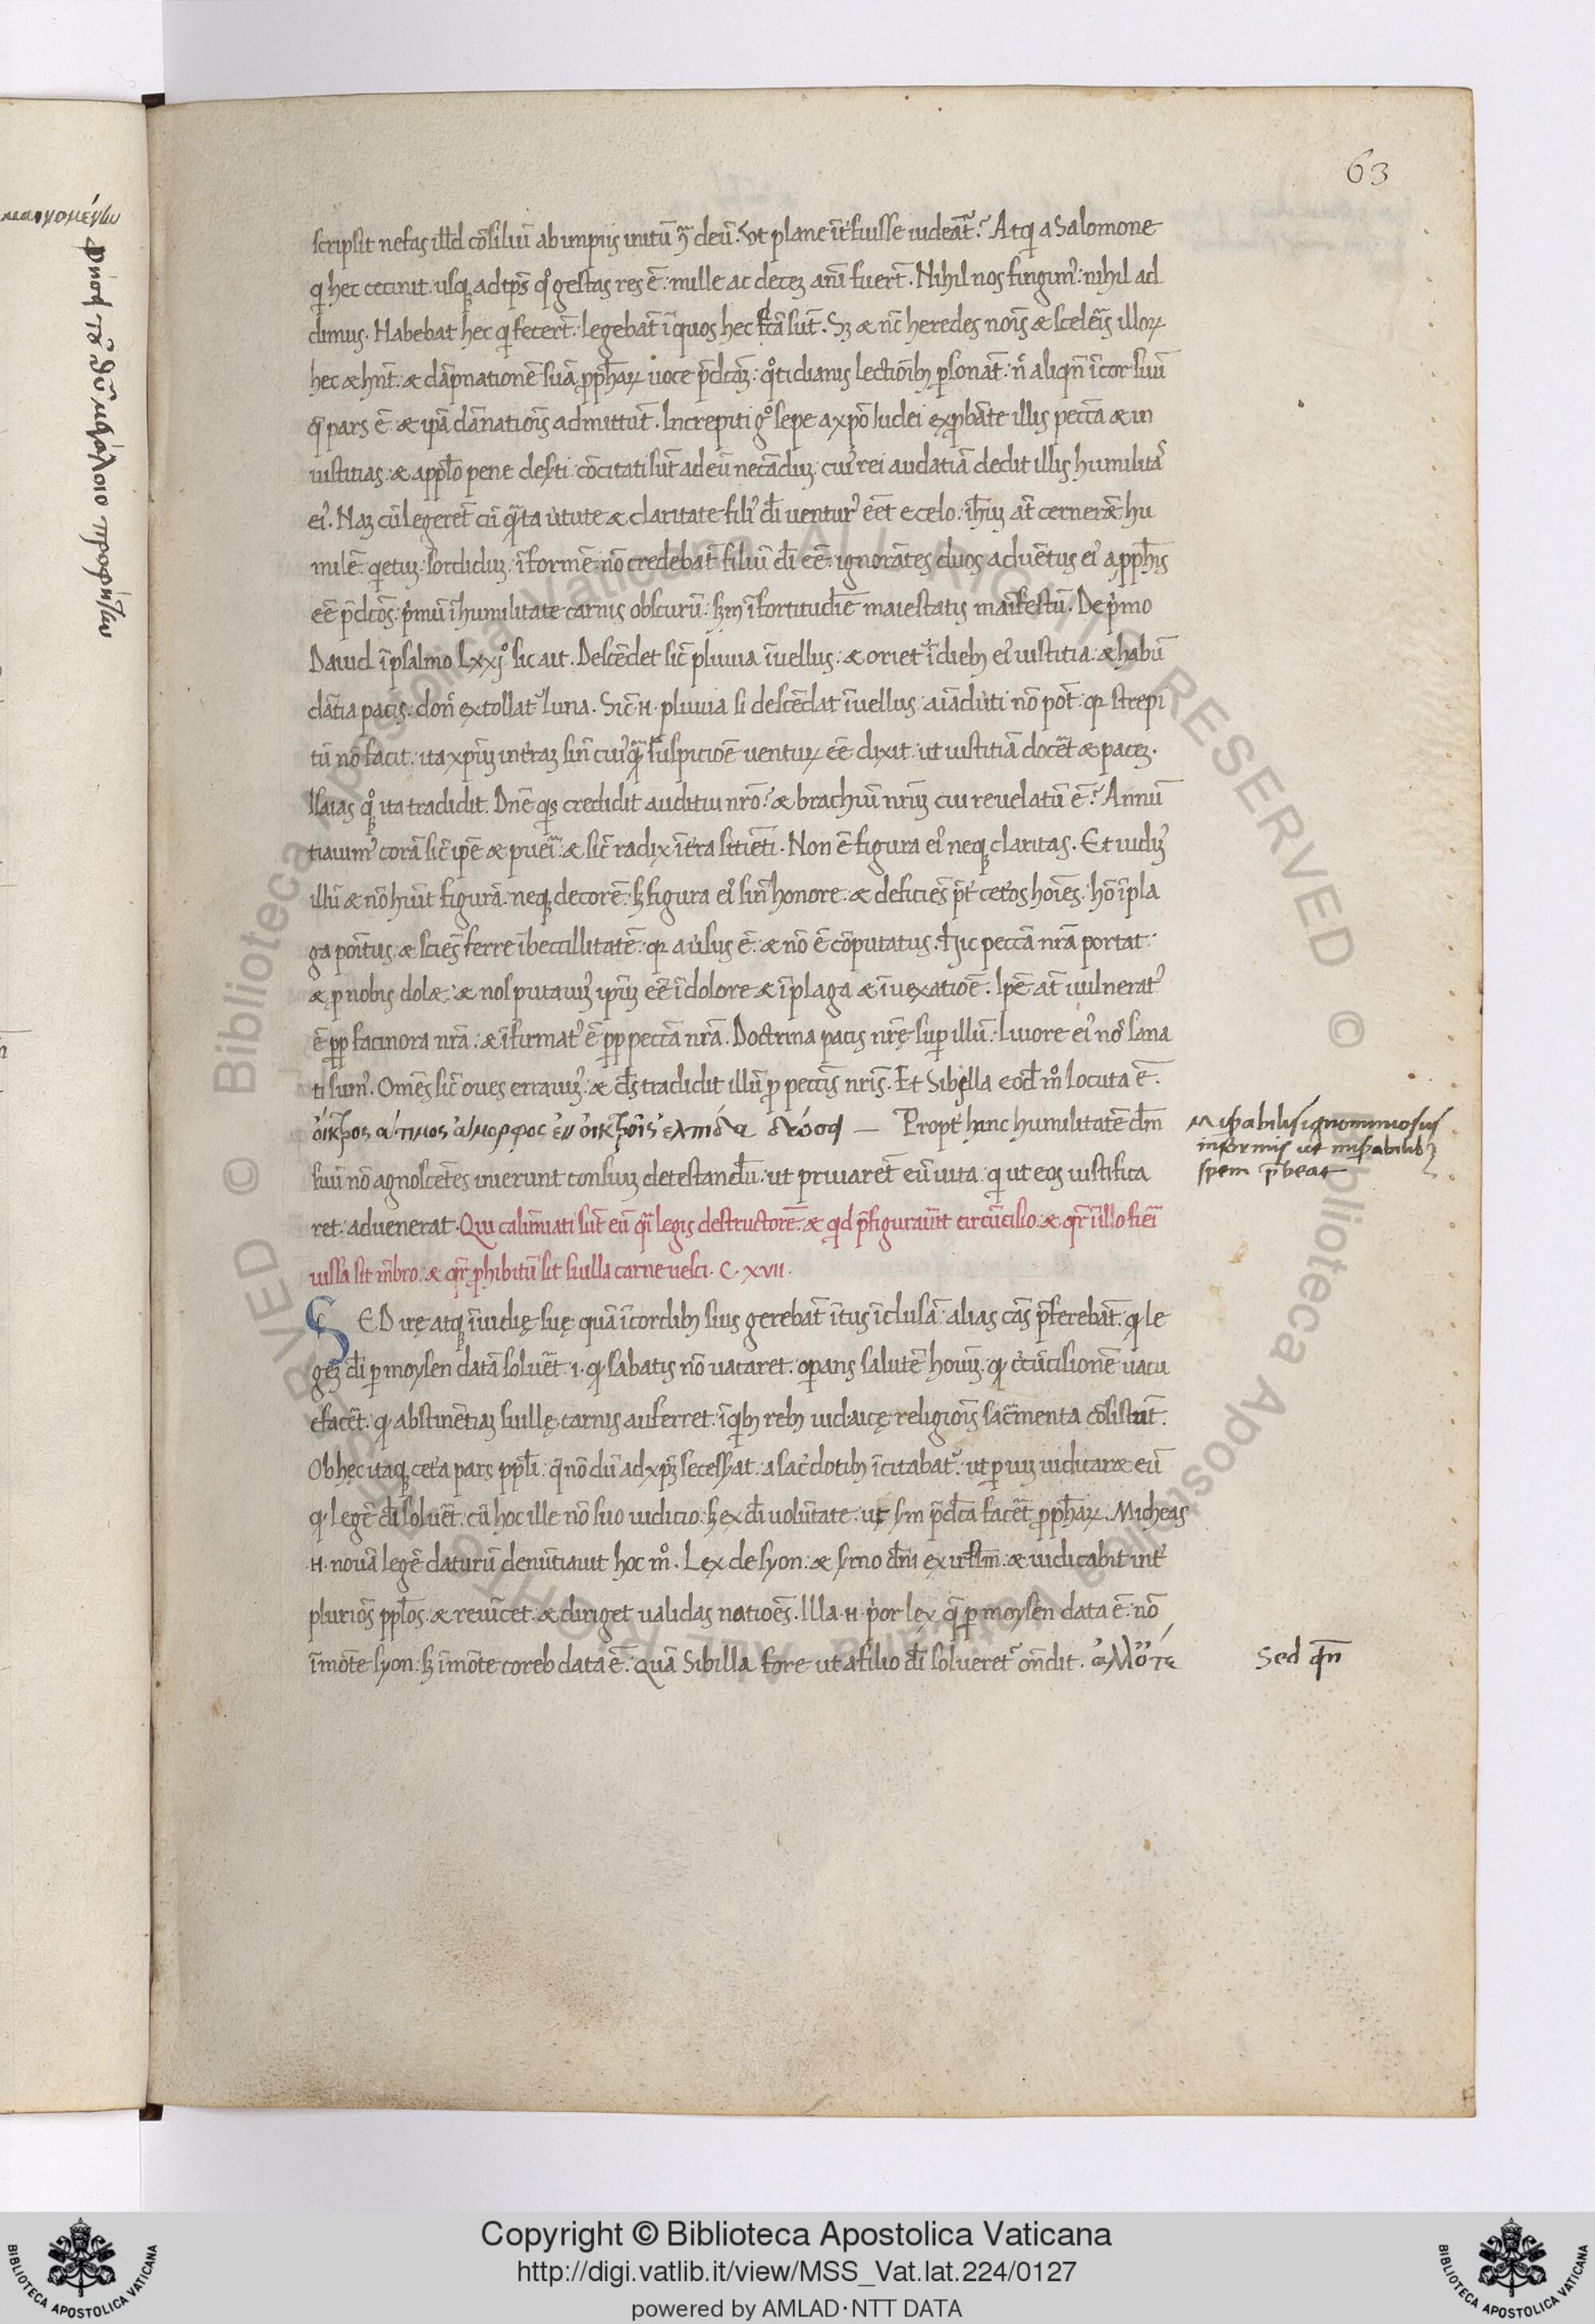 63
scripsit nefas illd̄ cōsiliuꝫ ab impiis initū ꝯ̄ deū. Vt plane īt͛fuisse uideat᷑? Atq̄ a Salomone
q̄ hec cecinit: usqꝫ ad tp̄s qͦ gesta res ē: mille ac decē anī fuert̄. Nihil nos fingimꝰ: nihil ad
dimus. Habebāt hec q̄ fecert̄: legebāt ī quos hec dc̄a sūt. Sꝫ ⁊ nc̄ heredes noīs ⁊ sceleris̄ illoꝝ
hec ⁊ hn̄t: ⁊ dāpnationē suā pp̄haꝝ uoce p̄dictā: qͦtidianis lectioībꝫ ꝑsonāt: n̄ aliqn̄ ī cor suū
q̄ pars ē ⁊ ip̄a dānatiōis admittūt. Increpiti gͦ sepe a xp̄o Iudei exꝓbāte illis pecc̄a ⁊ in
iustitias: ⁊ a pplō pene desti: cōcitati sūt ad eū necādū: cuiꝰ rei audatiā dedit illis humilitas̄
eiꝰ. Naꝫ cū legerēt cū q̄ta uͥtute ⁊ claritate filiꝰ dī uenturꝰ eēt e celo: ih̄m at̄ cerneret̄ hu
milē: q̄etuꝫ: sordiduꝫ: īformē: nō credebāt filiū dī eē: ignorātes duos aduētus eiꝰ a pp̄his
eē p̄dc̄os: pͥmū ī humilitate carnis obscurū: sc̄dm ī fortitudīe maiestatis maīfestū. De pͥmo
Dauid ī psalmo lxxjͦ sic ait. Descēdet sic̄ pluuia ī uellus: ⁊ oriet᷑ ī diebꝫ eiꝰ iustitia: ⁊ habū
dātia pacis: donͨ extollat᷑ luna. Sic̄ .n. pluuia si descēdat ī uellus: aīaduͥti nō pōt: qꝛ strepi
tū nō facit: ita xp̄m in t͛raꝫ sin̄ cuiꝰqꝫ suspitiōe uentuꝝ eē dixit: ut iustitiā docēt ⁊ pacē.
Isaias qͦqꝫ ita tradidit. Dn̄e qͥs credidit auditui nr̄o? ⁊ brachiū nr̄m cui reuelatū ē? Annū
tiauimꝰ corā sic̄ ip̄e ⁊ puer̄: ⁊ sic̄ radix ī t͛ra sitiēti. Non ē figura eiꝰ neqꝫ claritas. Et uidimꝰ
illū ⁊ nō huīt figurā: neqꝫ decorē: sꝫ figura eiꝰ sin̄ honore: ⁊ deficiēs p͛t cet͛os hoīes: hō ī pla
ga poītus: ⁊ sciēs ferre ībecillitatē: qꝛ auͥsus ē: ⁊ nō ē cōputatus. Hic pecc̄a nr̄a portat:
⁊ ꝓ nobis dolet: ⁊ nos putauimꝰ ip̄m eē ī dolore ⁊ ī plaga ⁊ ī uexatiōe. Ip̄e at̄ uulneratꝰ
ē ꝓp̄ facinora nr̄a: ⁊ īfirmatꝰ ē ꝓp̄ pecc̄a nr̄a. Doctrina pacis nr̄ę suꝑ illū: liuore eiꝰ nos̄ sana
ti sumꝰ. Omēs sic̄ oues errauimꝰ: ⁊ d̄s tradidit illū ꝓ pecc̄is nr̄is. Et Sibylla eod̄ mͦ locuta ē.
οἰκτρὸς ἄτιμος ἄμορφος ἐν οἰκτροῖς ελπίδα δώσῃ — Propt͛ hanc humilitatē dm̄
suū nō agnoscētes inierunt consiliuꝫ detestandū: ut priuarēt eū uita: q̄ ut eos iustifica
ret: aduenerat. Qui calūniati sūt eū q̄i legis destructorē: ⁊ qͥd p̄figurauīt circūcisio: ⁊ qr̄ ī illo fieri
iussa sit mēbro: ⁊ qr̄ ꝓhibitū sit suilla carne uesci. C. XVII.
SED irę atqꝫ īuidię suę quā ī cordibꝫ suis gerebāt ītus īclusā: alias cās p̄ferebāt: qꝙ le
gē dī ꝑ moysen datā solueret̄: .i. qꝙ sabatis nō uacaret: oꝑans salutē hoīuꝫ: qꝙ circūcisionē uacu
efacēt: qꝙ abstinētiaꝫ suillę carnis auferret: ī qͥbꝫ rebꝫ iudaicę religiōis sacͣmenta cōsistūt.
Ob hęc itaqꝫ cet͛a pars ppl̄i: q̄ nō dū ad xp̄m secesserat: a sac͛dotibꝫ īcitabat᷑: ut ꝑ uim iudicaret eū
qꝙ legē dī solueret̄: cū hoc ille nō suo iudicio: sꝫ ex dī uolūtate: ut sm̄ p̄dc̄a facēt pp̄haꝝ. Micheas
.n. nouā legē daturū denūtiauit hoc mͦ. Lex de syon: ⁊ s͛mo dn̄i ex irl̄m: ⁊ iudicabit int͛
plurios̄ ppl̄os: ⁊ reuīcet: ⁊ diriget ualidas natiōes. Illa .n. pͥor lex q̄ ꝑ moysen data ē: nō
ī mōte syon: sꝫ ī mōte coreb data ē: Quā Sibilla fore ut a filio dī solueret᷑ on̄dit. ἀλλ' ὅτε
Miserabilis ignominiosus
informis ut miserabilibꝫ
spem p̄beat
Sed qn̄
Copyright © Biblioteca Apostolica Vaticana
http://digi.vatlib.it/view/MSS_Vat.lat.224/0127
powered by AMLAD·NTT DATA
BIBLIOTECA APOSTOLICA VATICANA
BIBLIOTECA APOSTOLICA VATICANA